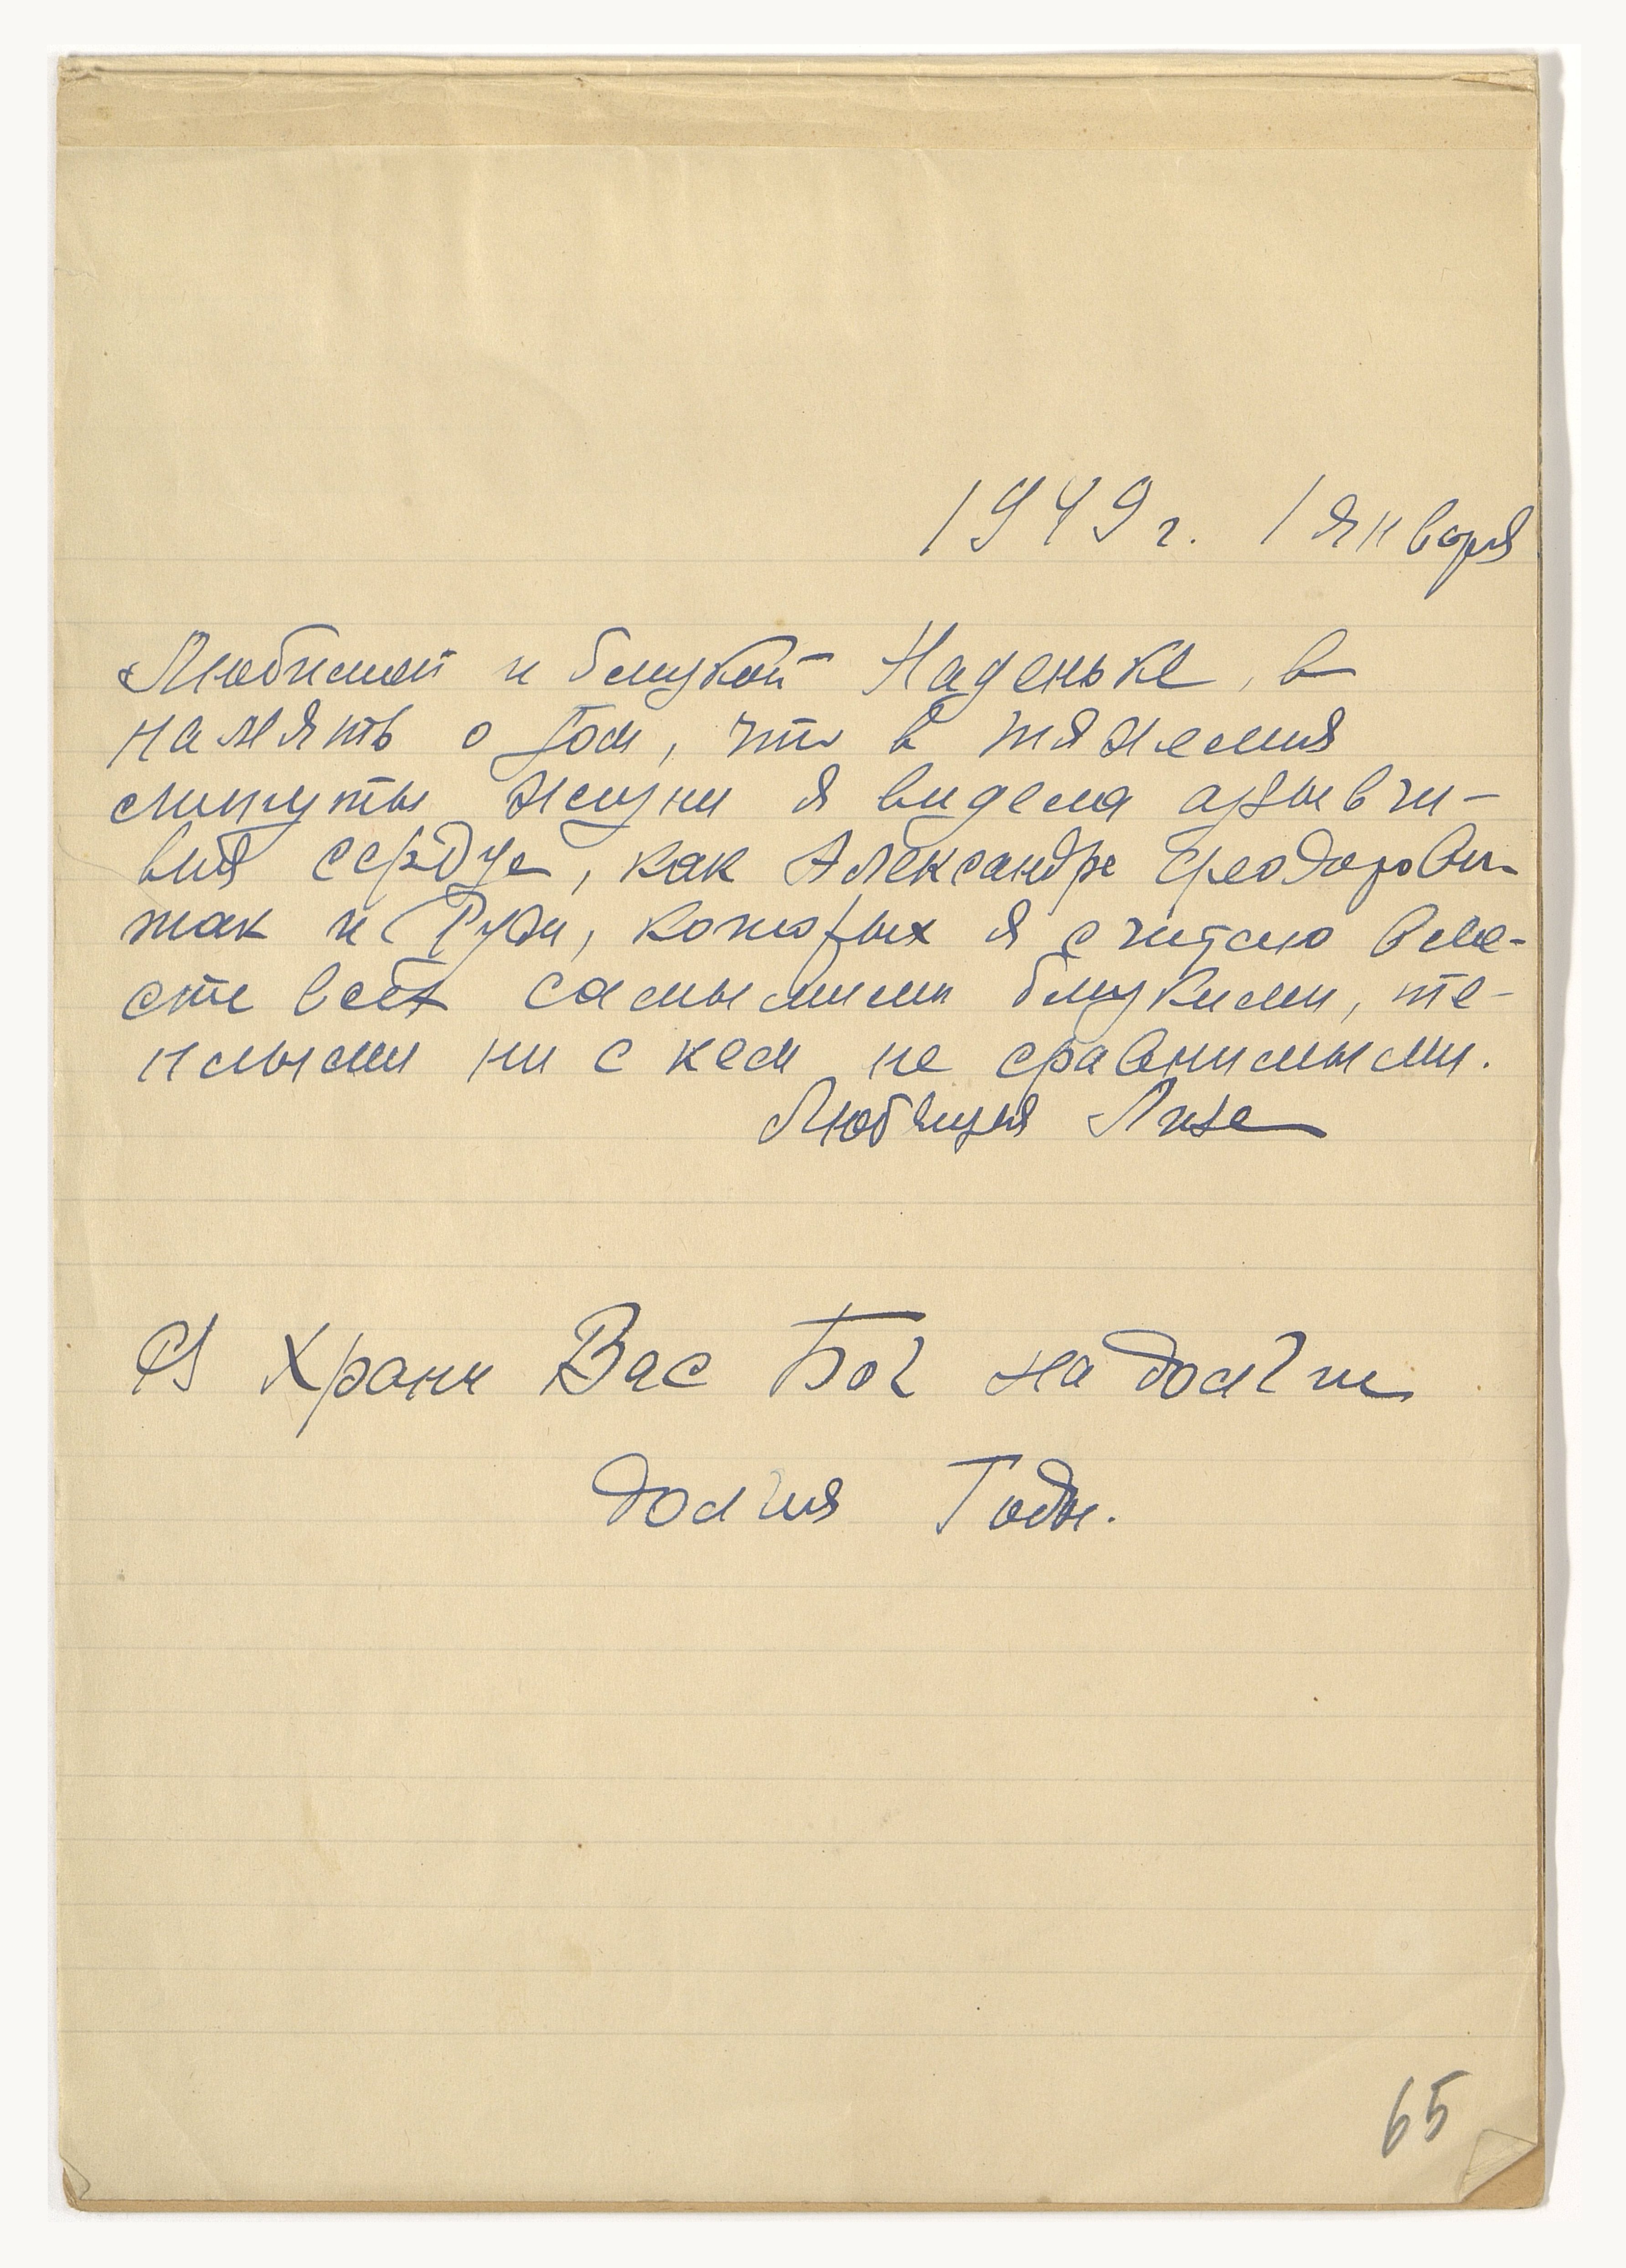 1949 г. 1 января
Любимой и близкой Наденьке, в
память о том, что в тяжелыя
минуты жизни я видела отзывчи-
выя сердца, как Александре Феодорови-
так и Руди, которых я считаю вме-
сте всех самыми близкими, те-
плыми ни с кем не сравнимыми.
Любящая Лиза
Храни Вас Бог на долги
долгия Годы.
65